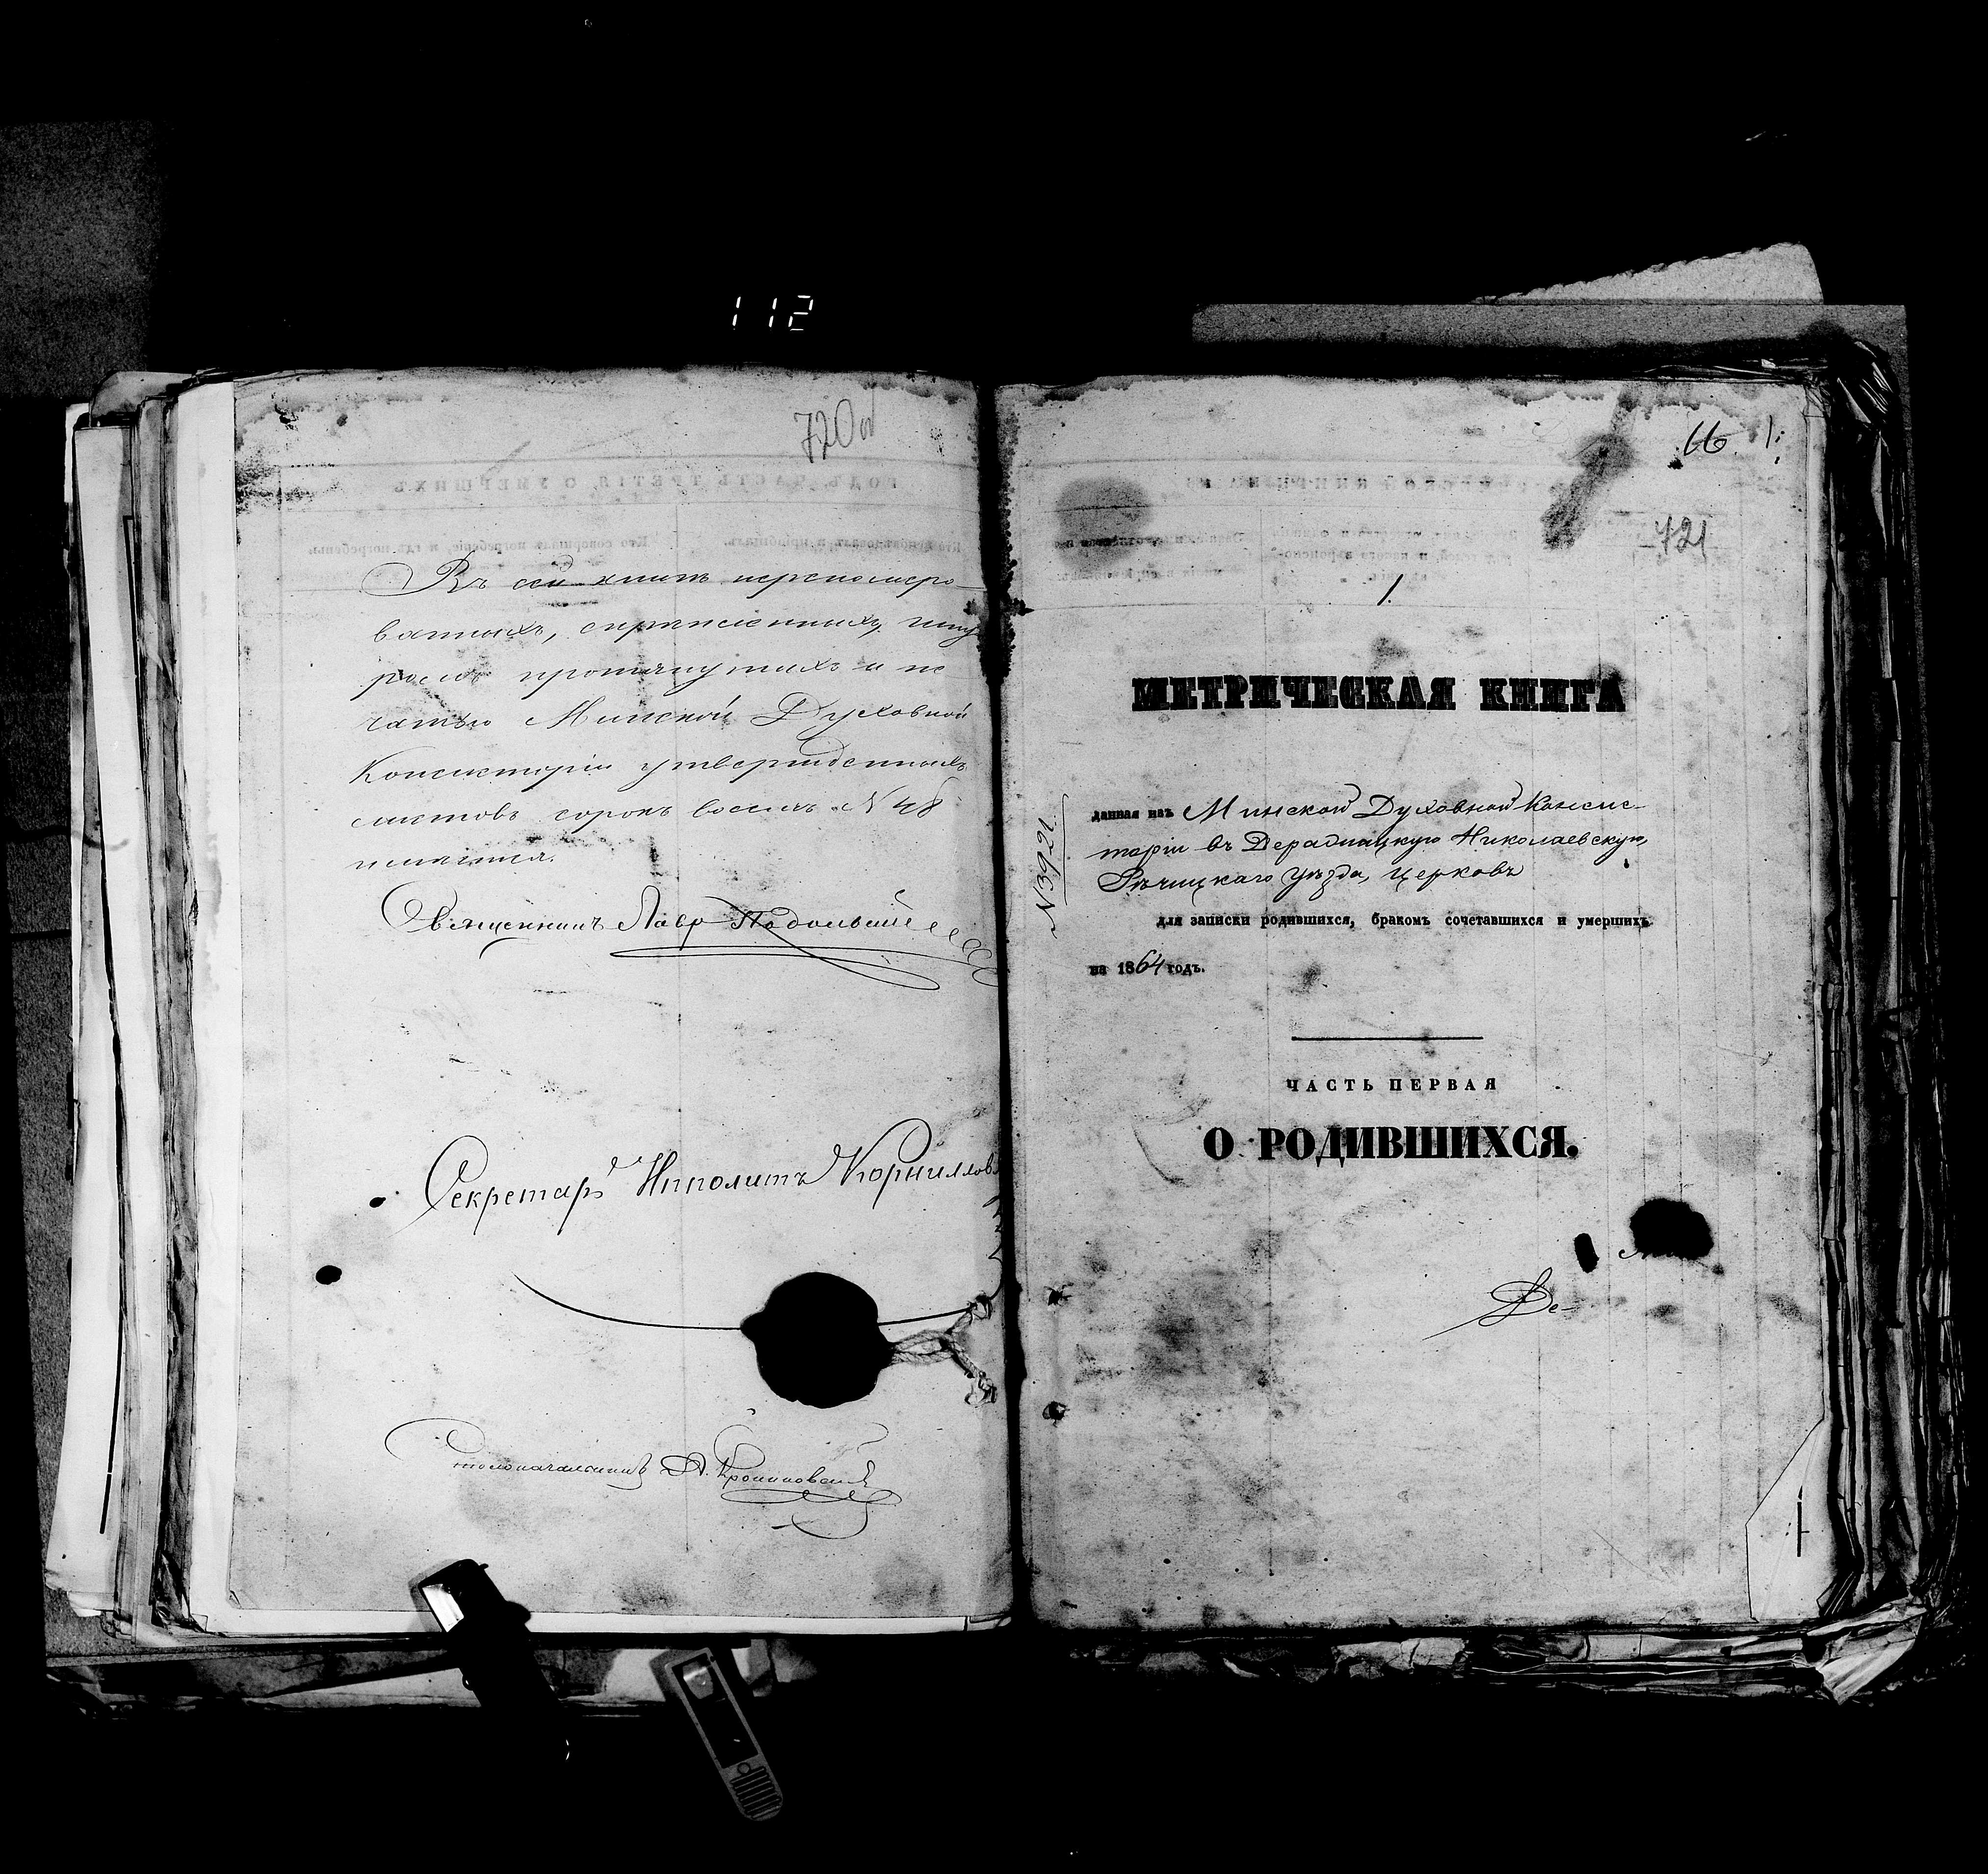 112
720 об
Въ сей книгѣ перенумеро-
ванныхъ, скрѣпленныхъ, шну-
ромъ протянутыхъ и пе
чатью Минской Духовной
Консисторіи утвержденныхъ
листовъ сорокъ восемь N 48
имѣется.
Священникъ Лавр
Секретарь Ипполитъ Корнилов
Столоначальникъ А.
66. 1.
721
1.
МЕТРИЧЕСКАЯ КНИГА
данная изъ Минской Духовной Консис-
торіи въ Дерадницкую Николаевскую,
Рѣчицкаго уѣзда, церковь
N 3921
для записки родившихся, бракомъ сочетавшихся и умершихъ
на 1864 годъ.
ЧАСТЬ ПЕРВАЯ
О РОДИВШИХСЯ.
Де-